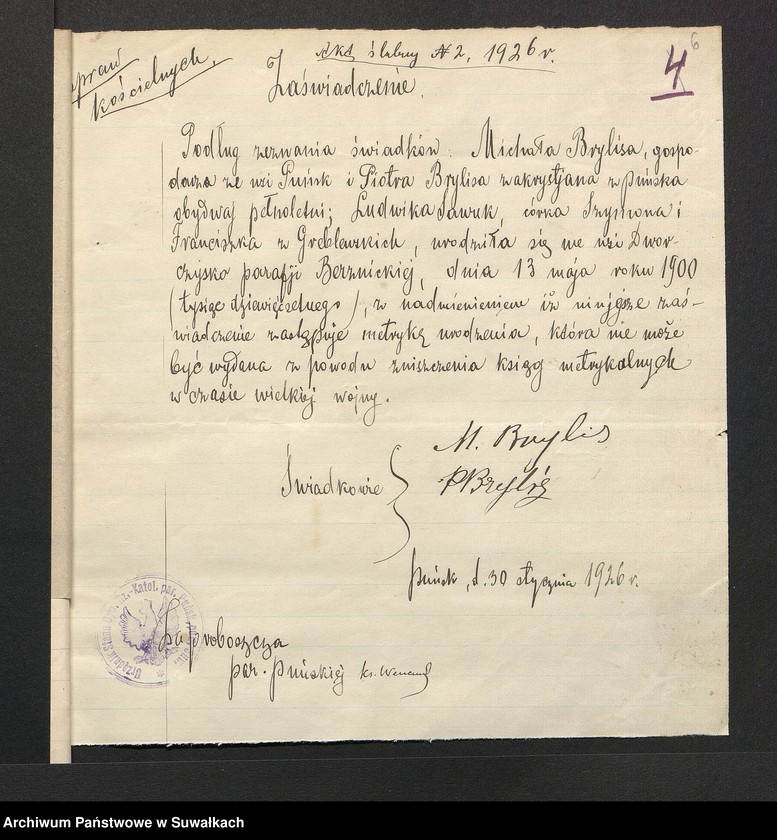 Akt ślubny № 2, 1926 r.
spraw
kościelnych.
4
6
Zaświadczenie.
Podług zeznania świadków: Michała Brylisa, gospo-
darza ze wsi Puńsk i Piotra Brylisa zakrystjana z Puńska
obydwaj pełnoletni; Ludwika Sawuk, córka Szymona i
Franciszka z Greblewskich, urodziła się we wsi Dwor-
czysko parafji Berznickiej, dnia 13 mája roku 1900
(tysiąc dziewięćsetnego), z nadmienieniem iż niniejsze zaś-
wiadczenie zastępuje metrykę urodzenia, która nie może
być wydana z powodu zniszczenia ksiąg metrykalnych
w czasie wielkiej wojny.
M. Brylis
Świadkowie
P Brylis
Puńsk, d. 30 stycznia 1926 r.
Urzędnik Stanu Cyw. Rz.-Katol. par.
Za proboszcza
par. Puńskiej ks.
Archiwum Państwowe w Suwałkach